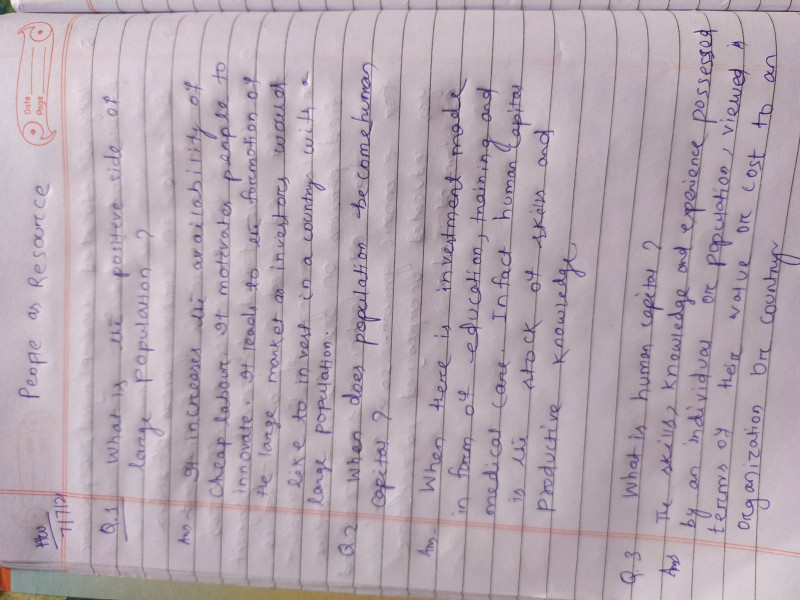 Date
Page
HW
7/7/2
People as Resource
Q.1 What is the positive side of
large population ?
Ans- It increases the availability of
cheap labour. It motivates people to
innovate. It leads to the formation of
the large market as investors would
like to invest in a country with a
large population.
Q.2 When does population become human
capital ?
Ans- When there is investment made
in form of education, training and
medical care. Infact human capital
is the stock of skills and
productive knowledge
Q.3 What is human capital ?
Ans The skills, knowledge and experience possessed
by an individual or population, viewed in
terms of their value or cost to an
organization or country